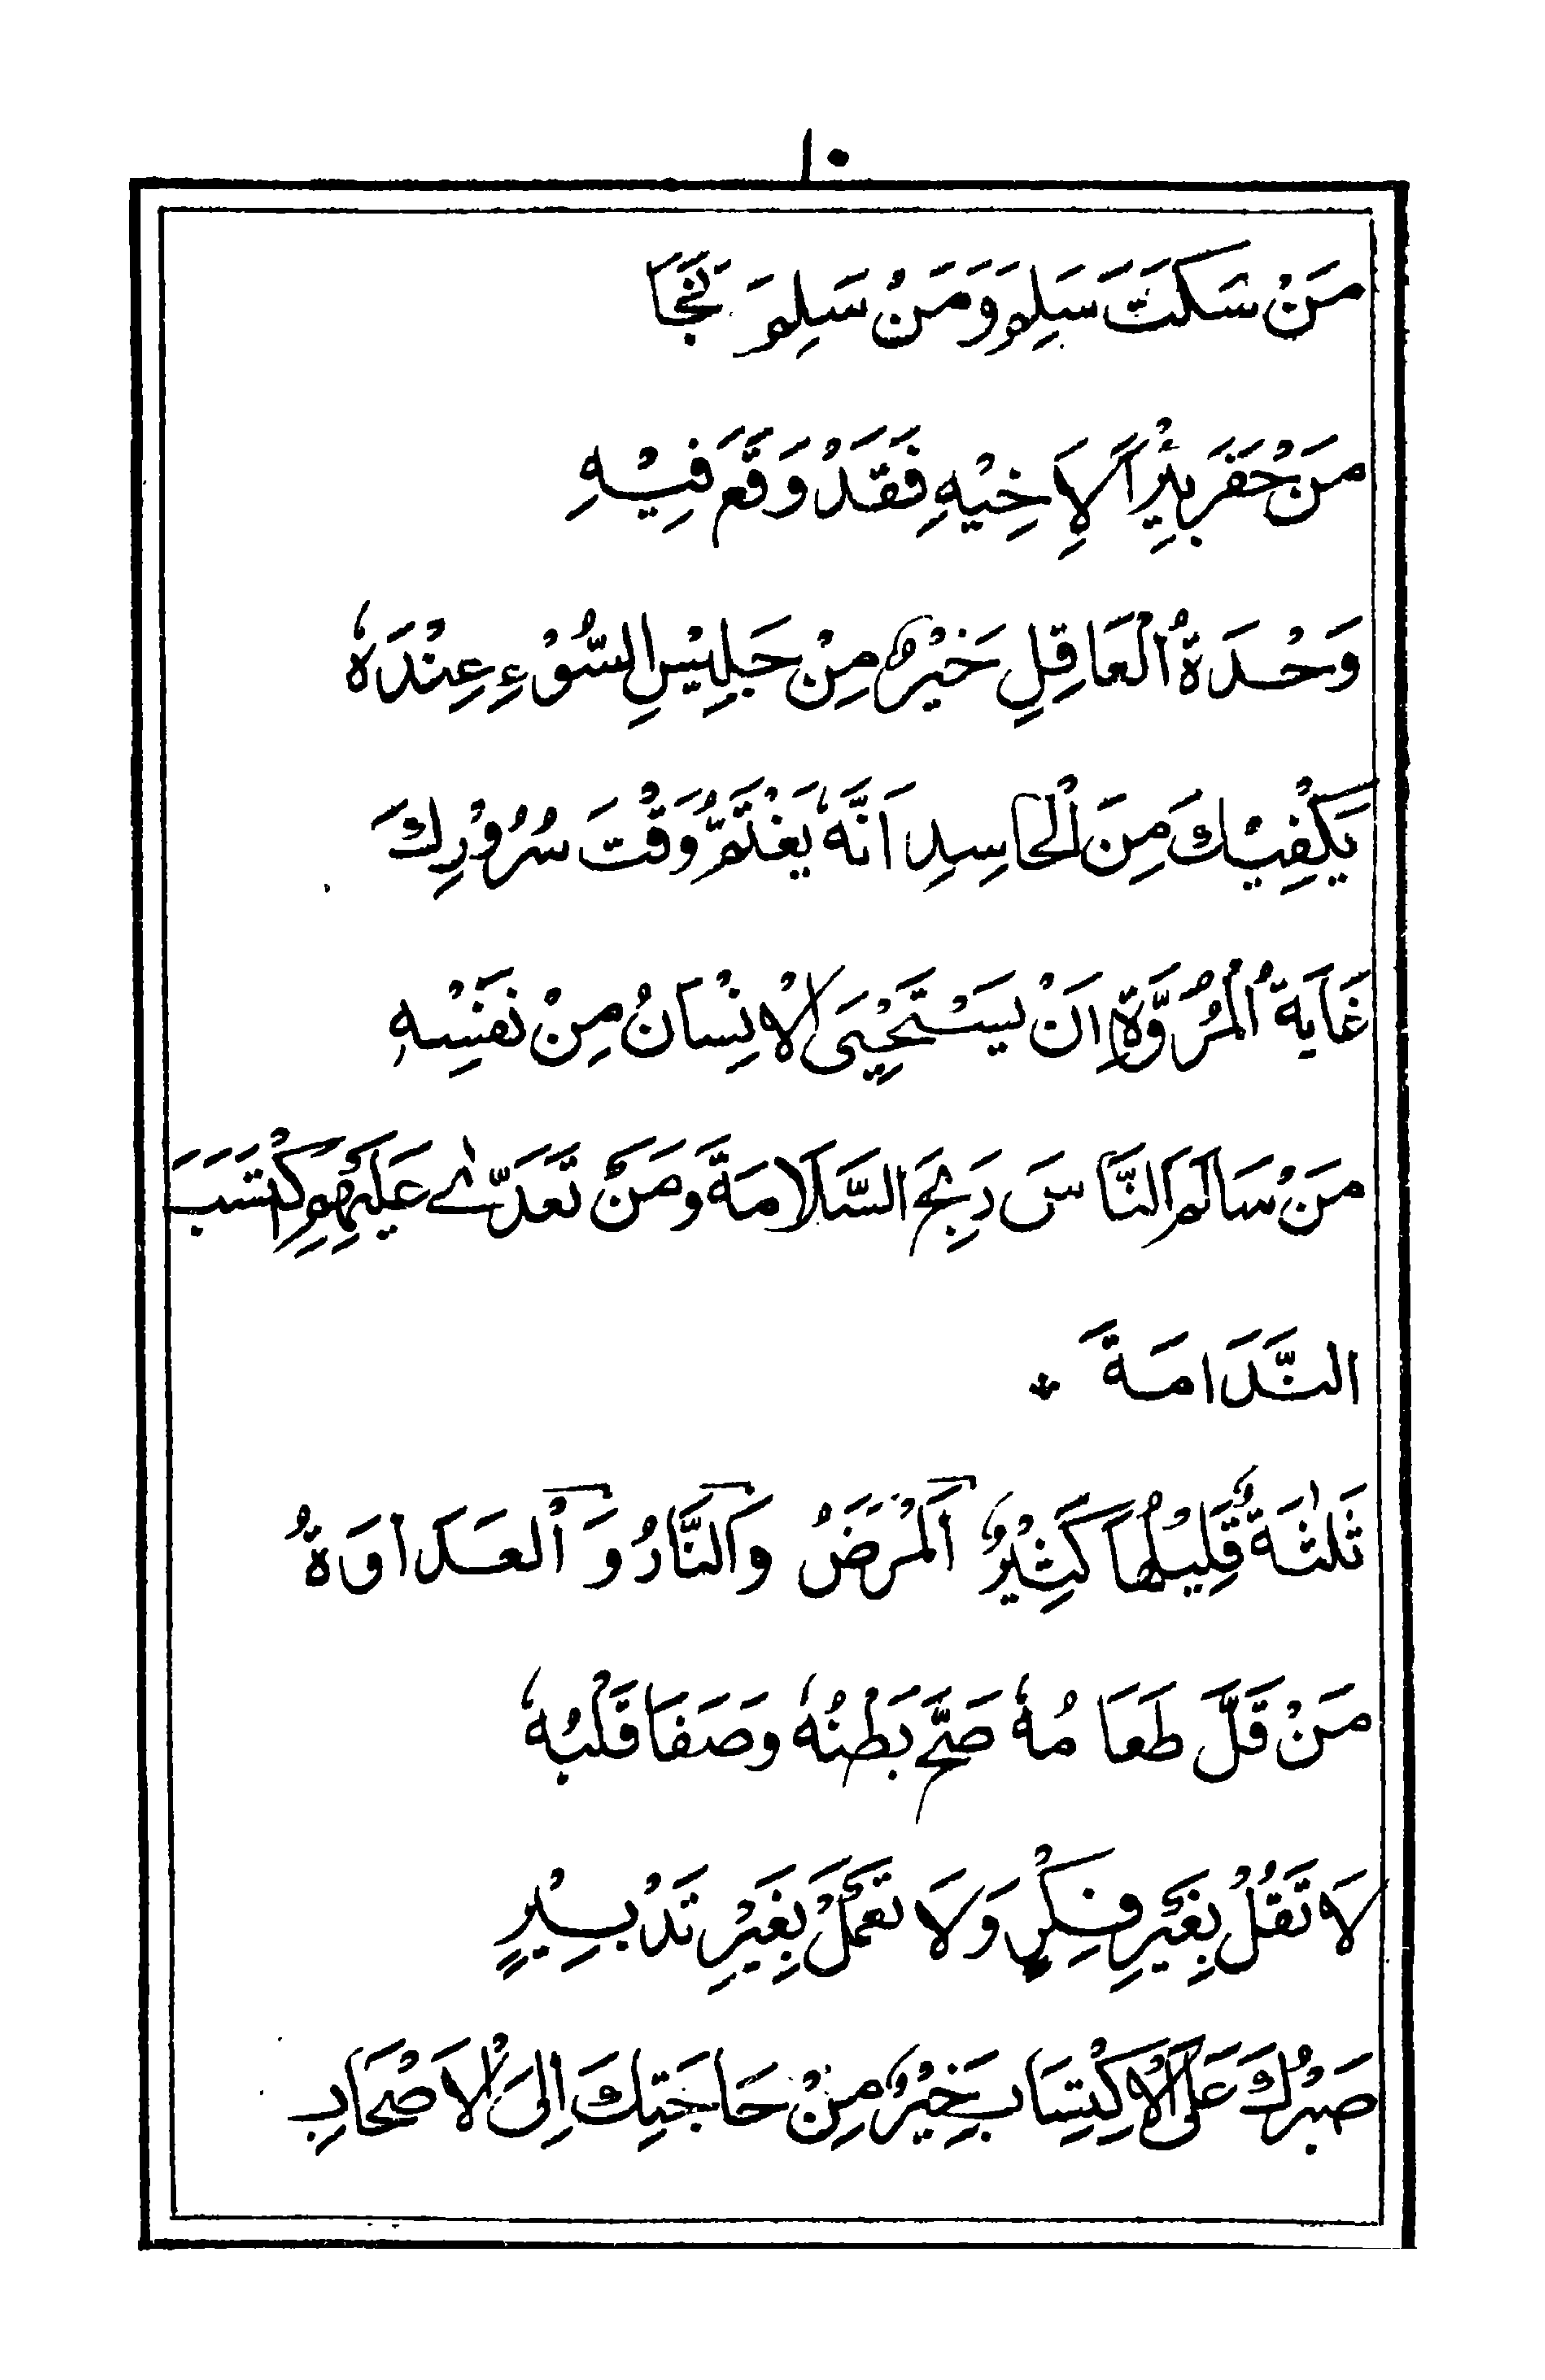 ١٠
مَنْ سَكَتَ سَلِمَ وَمَنْ سَلِمَ نَجَا
مَنْ حَفَرَ بِئْرًا لِاَخِيْهِ فَقَدْ وَقَعَ فِيْهِ
وَحْدَةُ الْعَاقِلِ خَيْرٌ مِنْ جَلِيْسِ السُّوْءِ عِنْدَهٗ
يَكْفِيْكَ مِنَ الْحَاسِدِ اَنَّهٗ يَغْتَمُّ وَقْتَ سُرُوْرِكَ
غَايَةُ الْمُرُوَّةِ اَنْ يَسْتَحْيِىَ الْاِنْسَانُ مِنْ نَفْسِهٖ
مَنْ سَالَمَ النَّاسَ رَبِحَ السَّلَامَةَ وَمَنْ تَعَدّٰى عَلَيْهِمِ كْتَسَبَ
النَّدَامَةَ
ثَلٰثَةٌ قَلِيْلُهَا كَثِيْرٌ اَلْمَرَضُ وَالنَّارُ وَ الْعَدَاوَةُ
مَنْ قَلَّ طَعَامُهٗ صَحَّ بَطْنُهٗ وَصَفَا قَلْبُهٗ
لَا تَقُلْ بِغَيْرِ فِكْرٍ وَلَا تَعْمَلْ بِغَيْرِ تَدْبِيْرٍ
صَبْرُكَ عَلَى الْاِكْتِسَابِ خَيْرٌ مِنْ حَاجَتِكَ اِلَى الْاَصْحَابِ